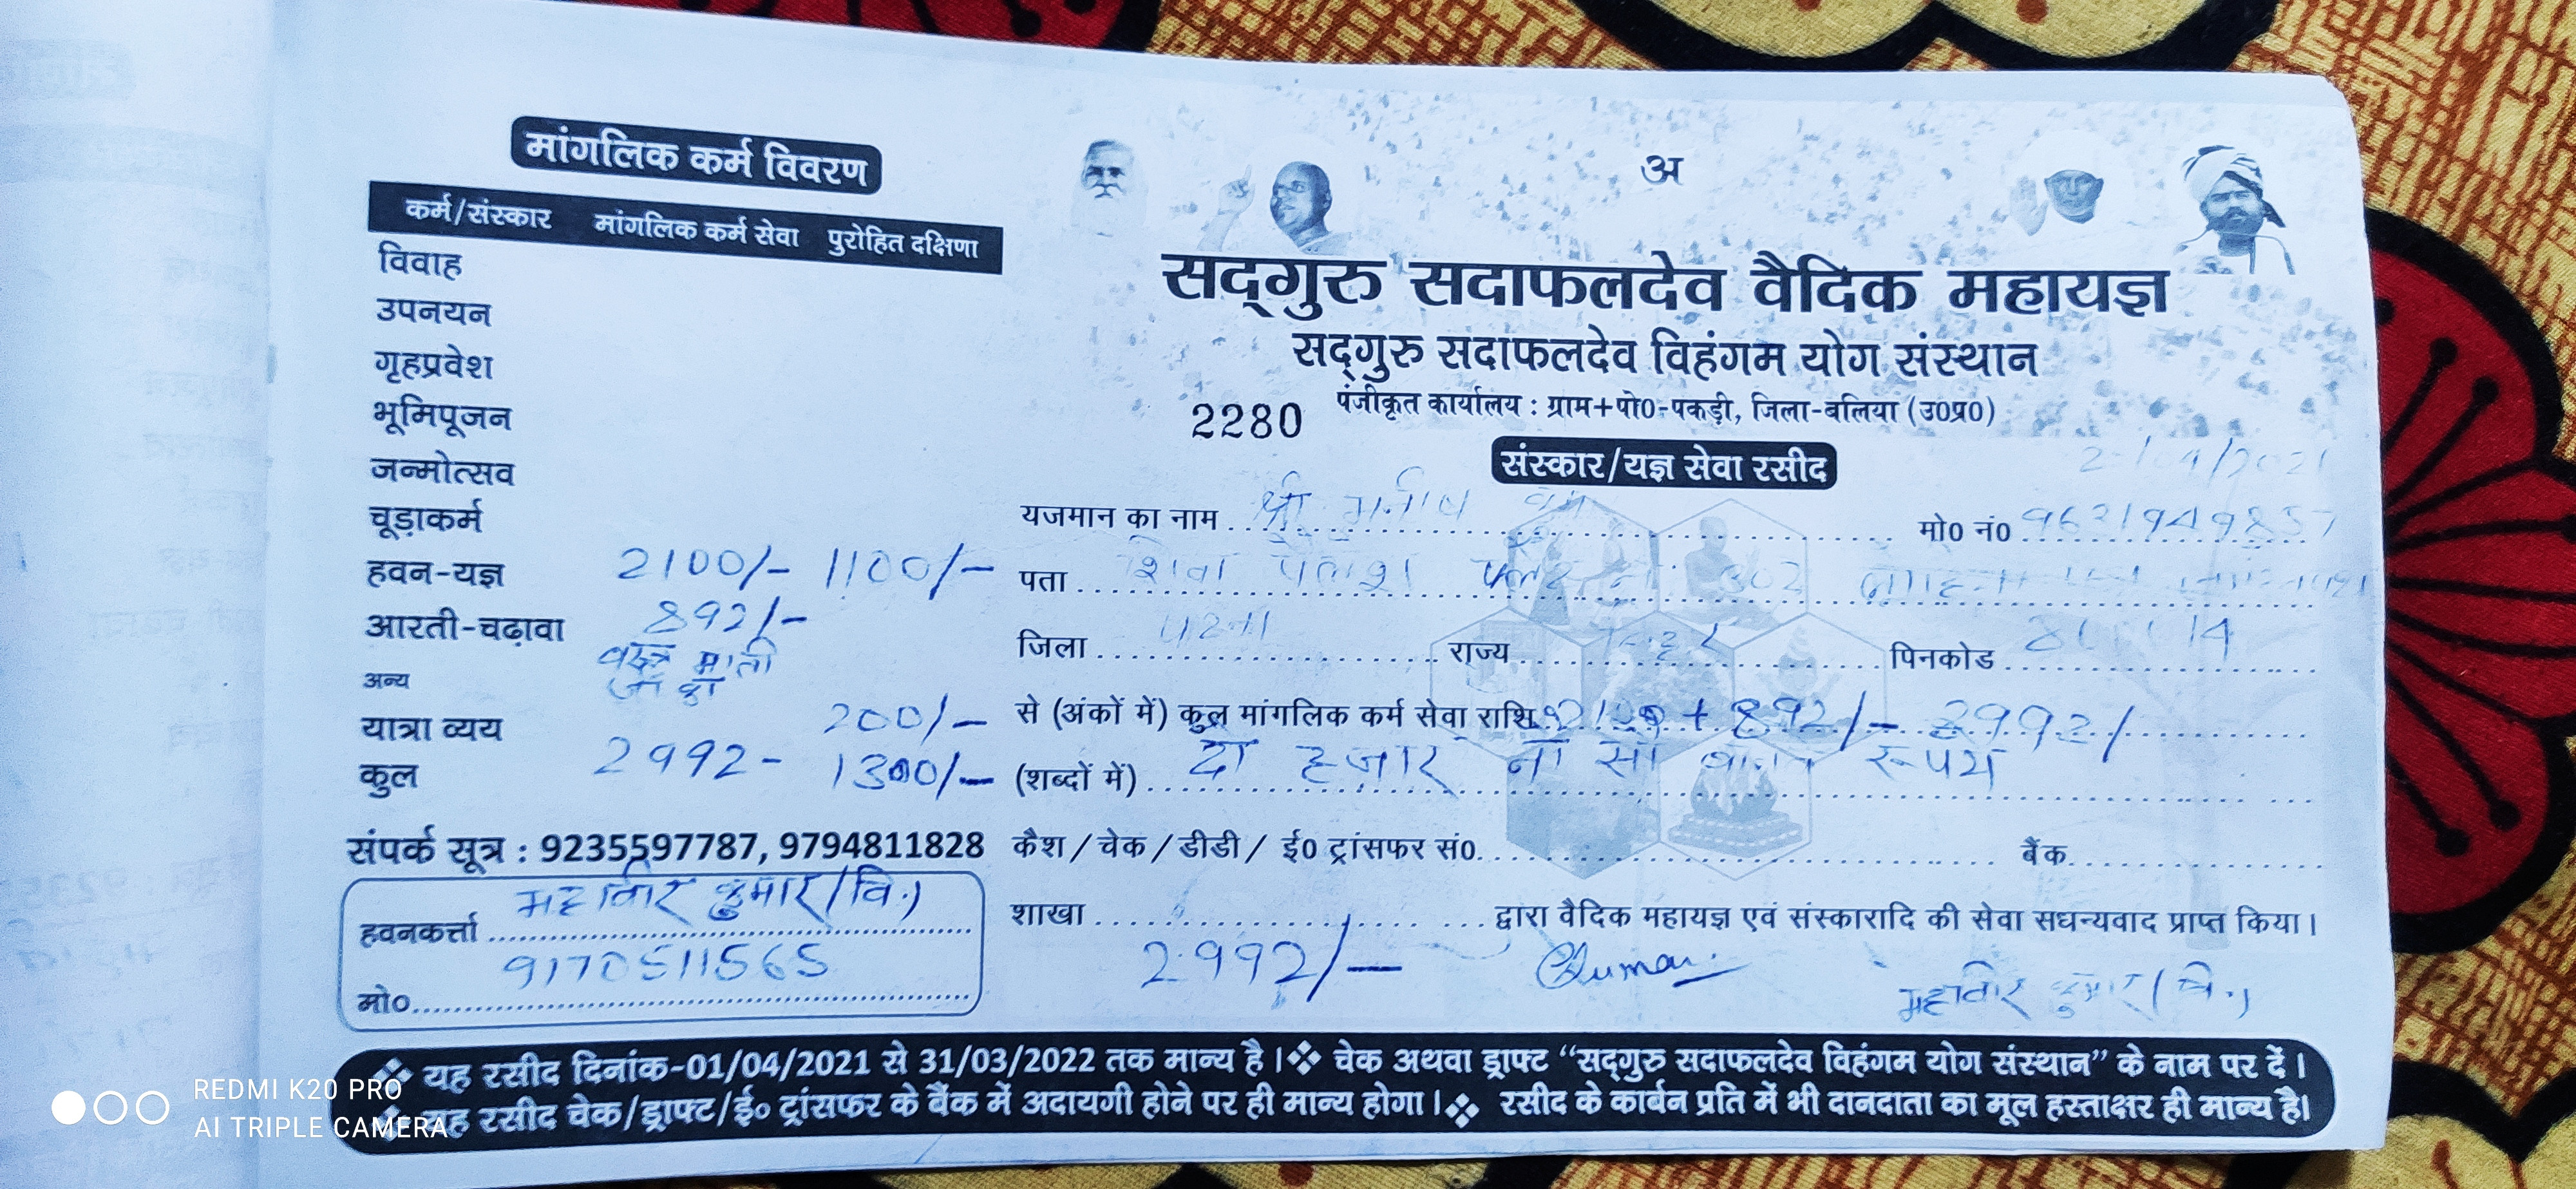 मांगलिक कर्म विवरण
कर्म/संस्कार मांगलिक कर्म सेवा पुरोहित दक्षिणा
विवाह
उपनयन
गृहप्रवेश
भूमिपूजन
जन्मोत्सव
चूड़ाकर्म
हवन-यज्ञ 2100/- 1100/-
आरती-चढ़ावा 892/-
अन्य
यात्रा व्यय 200/-
कुल 2992- 1300/-
संपर्क सूत्र : 9235597787, 9794811828
हवनकर्त्ता महावीर कुमार (वि.)
मो० 9170511565
अ
सद्‌गुरु सदाफलदेव वैदिक महायज्ञ
सद्‌गुरु सदाफलदेव विहंगम योग संस्थान
पंजीकृत कार्यालय : ग्राम+पो0-पकड़ी, जिला-बलिया (उ0प्र0)
2280
संस्कार/यज्ञ सेवा रसीद
यजमान का नाम श्री मो0 नं0
पता शिवा 302
जिला पटना राज्य पिनकोड
से (अंकों में) कुल मांगलिक कर्म सेवा राशि 2100 + 892/- 2992/
(शब्दों में) दो हजार नौ सौ रूपये
कैश / चेक / डीडी / ई0 ट्रांसफर सं0 बैंक
शाखा द्वारा वैदिक महायज्ञ एवं संस्कारादि की सेवा सधन्यवाद प्राप्त किया।
2992/- Kumar महावीर कुमार (वि.)
❖ यह रसीद दिनांक-01/04/2021 से 31/03/2022 तक मान्य है। ❖ चेक अथवा ड्राफ्ट “सद्‌गुरु सदाफलदेव विहंगम योग संस्थान” के नाम पर दें।
❖ यह रसीद चेक/ड्राफ्ट/ई० ट्रांसफर के बैंक में अदायगी होने पर ही मान्य होगा। ❖ रसीद के कार्बन प्रति में भी दानदाता का मूल हस्ताक्षर ही मान्य है।
REDMI K20 PRO
AI TRIPLE CAMERA